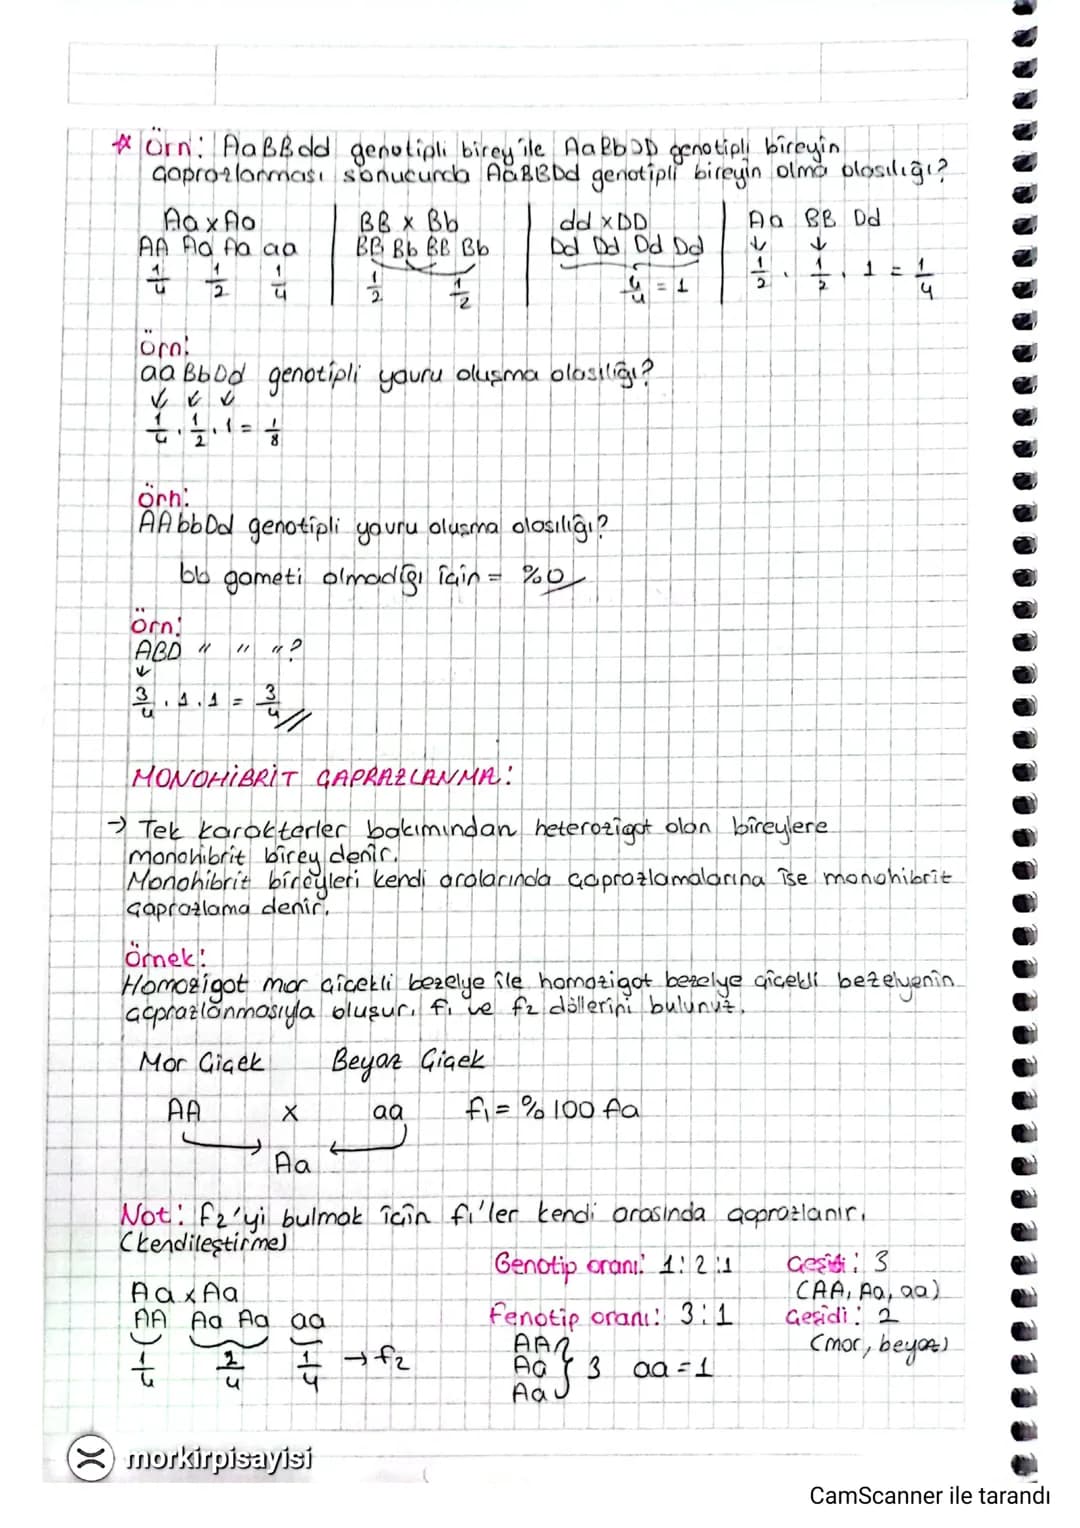 ☆ Örn: AaBBdd genotipli birey ile AaBbDD genotipli bireyin
çaprazlanması sonucunda AaBBDd genotipli bireyin olma olasılığı?
Aa x Aa | BB x Bb | dd x DD | Aa BB Dd
AA Aa Aa aa | BB Bb BB Bb | Dd Dd Dd Dd | ↓ ↓
1/4 1/2 1/4 | 1/2 1/2 | 4/4 = 1 | 1/2 . 1/2 . 1 = 1/4
Örn:
aaBbDd genotipli yavru oluşma olasılığı?
↓ ↓ ↓
1/4 . 1/2 . 1 = 1/8
Örn:
AAbbDd genotipli yavru oluşma olasılığı?
bb gameti olmadığı için = %0
Örn:
ABD " " " ?
↓
3/4 . 1 . 1 = 3/4 //
MONOHİBRİT ÇAPRAZLANMA:
→ Tek karakterler bakımından heterozigot olan bireylere
monohibrit birey denir.
Monohibrit bireyleri kendi aralarında çaprazlamalarına ise monohibrit
çaprazlama denir.
Örnek:
Homozigot mor çiçekli bezelye ile homozigot bezelye çiçekli bezelyenin
çaprazlanmasıyla oluşur. f1 ve f2 döllerini bulunuz.
Mor Çiçek Beyaz Çiçek
AA x aa f1 = %100 Aa
Aa
Not: f2'yi bulmak için f1'ler kendi arasında çaprazlanır.
(kendileştirme)
Genotip oranı: 1:2:1 Çeşidi: 3
Aa x Aa (AA, Aa, aa)
AA Aa Aa aa Fenotip oranı: 3:1 Çeşidi: 2
1/4 2/4 1/4 → f2 (mor, beyaz)
AA
Aa } 3 aa = 1
Aa
morkirpisayisi
CamScanner ile tarandı